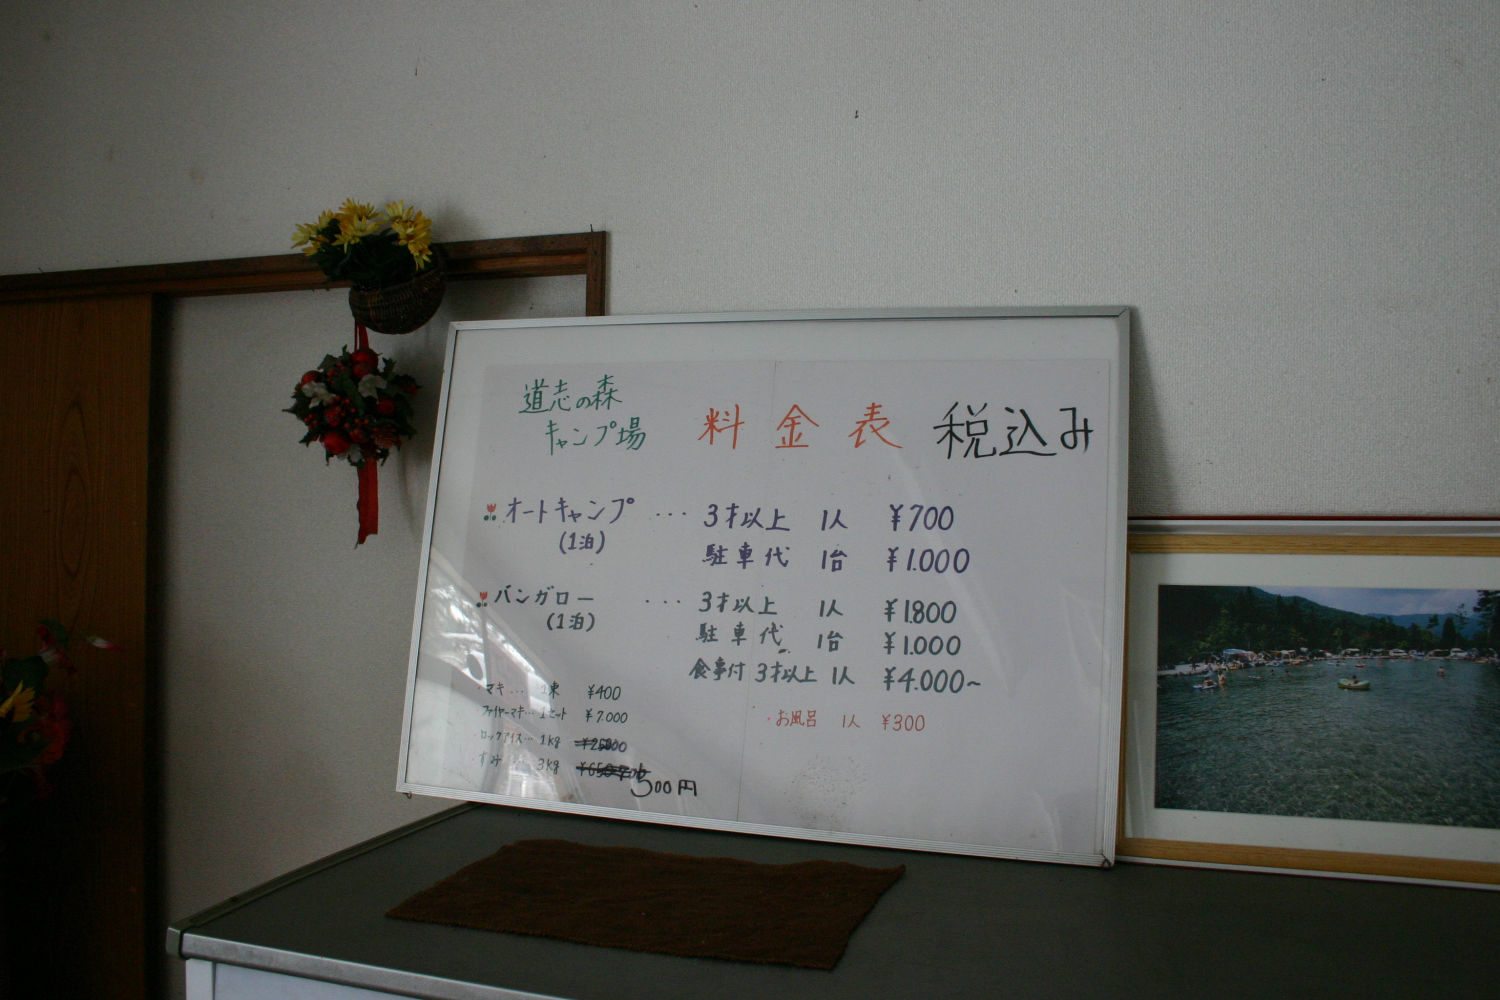 道志の森
キャンプ場
料金表 税込み
オートキャンプ ... 3才以上 1人 ¥700
(1泊)
駐車代 1台 ¥1.000
バンガロー ... 3才以上 1人 ¥1800
(1泊)
駐車代 1台 ¥1.000
食事付 3才以上 1人 ¥4.000~
・お風呂 1人 ¥300
・マキ... 1束 ¥400
・ファイヤーマキ...1セット
・ロックアイス... 1kg
・すみ ... 3kg
500円